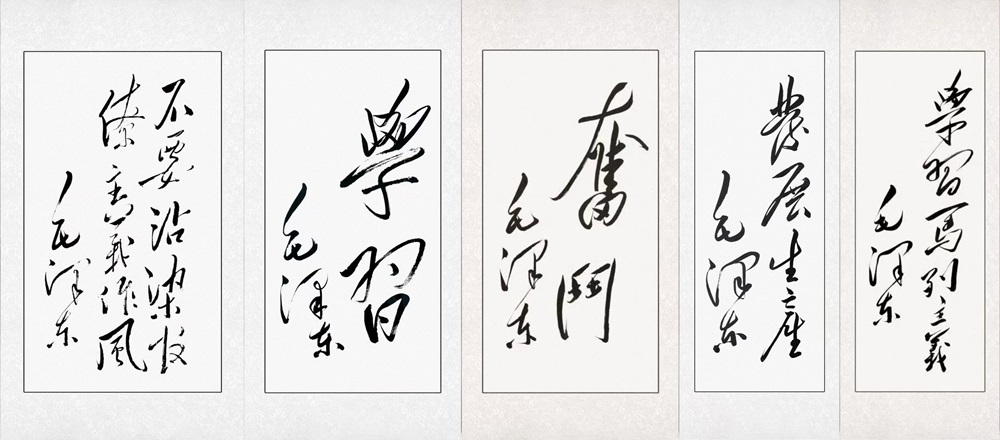 不要沾染官
僚主義作風
毛泽东
學習
毛泽东
奮鬥
毛泽东
發展生產
毛泽东
學習馬列主義
毛泽东